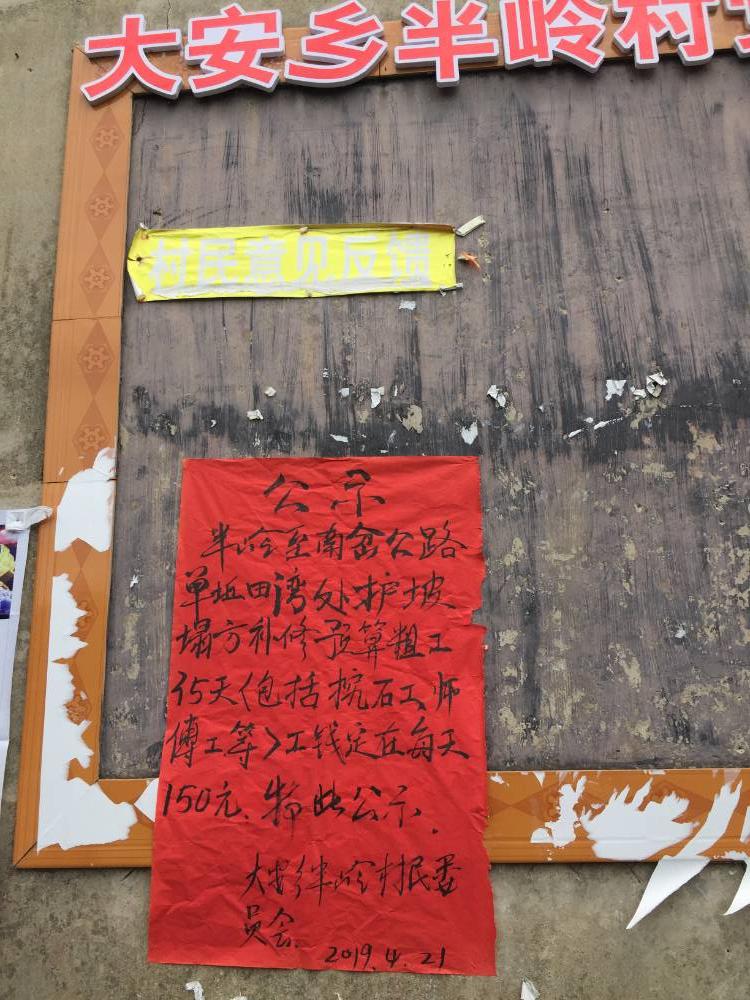 大安乡半岭村
村民意见反馈
公示
半岭至南岔公路
单坵田湾处护坡
塌方补修预算粗工
15天(包括挖石工师
傅工等)工钱定在每天
150元.特此公示.
大安乡半岭村民委
员会.
2019.4.21